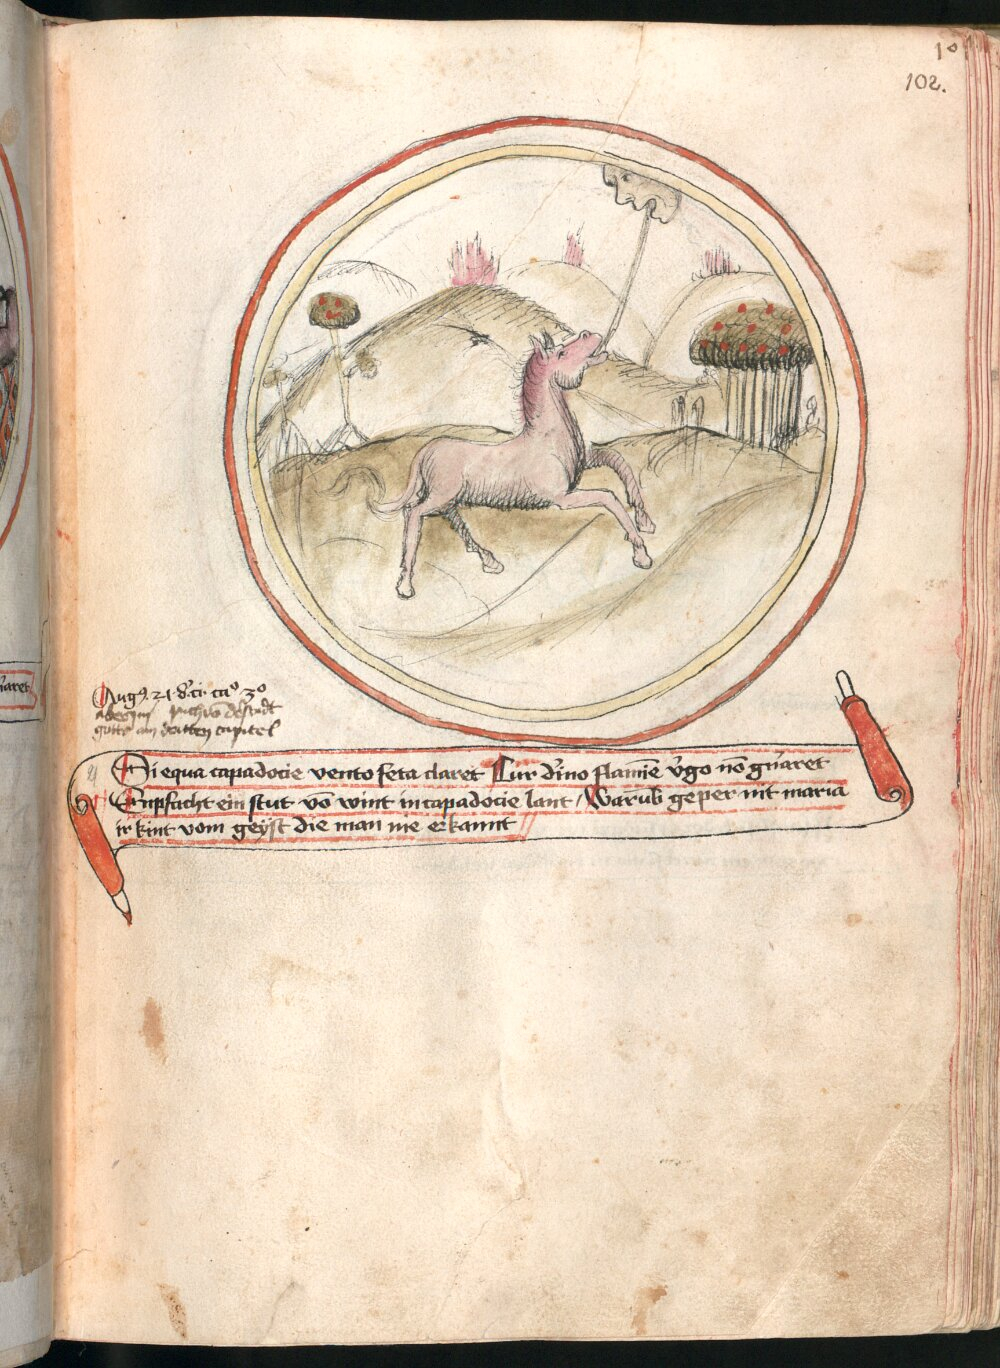 1º
102.
Aug9. 21. d'ci. cao 3o
am dritten capitel
Si equa capadocie vento feta claret Cur d'ino flamīe v'go nō gn̄aret
Enpfacht ein stut vō wint in capadocie lant / Warūb geper nit maria
ir kint vom geyst die man nie erkannt
naret